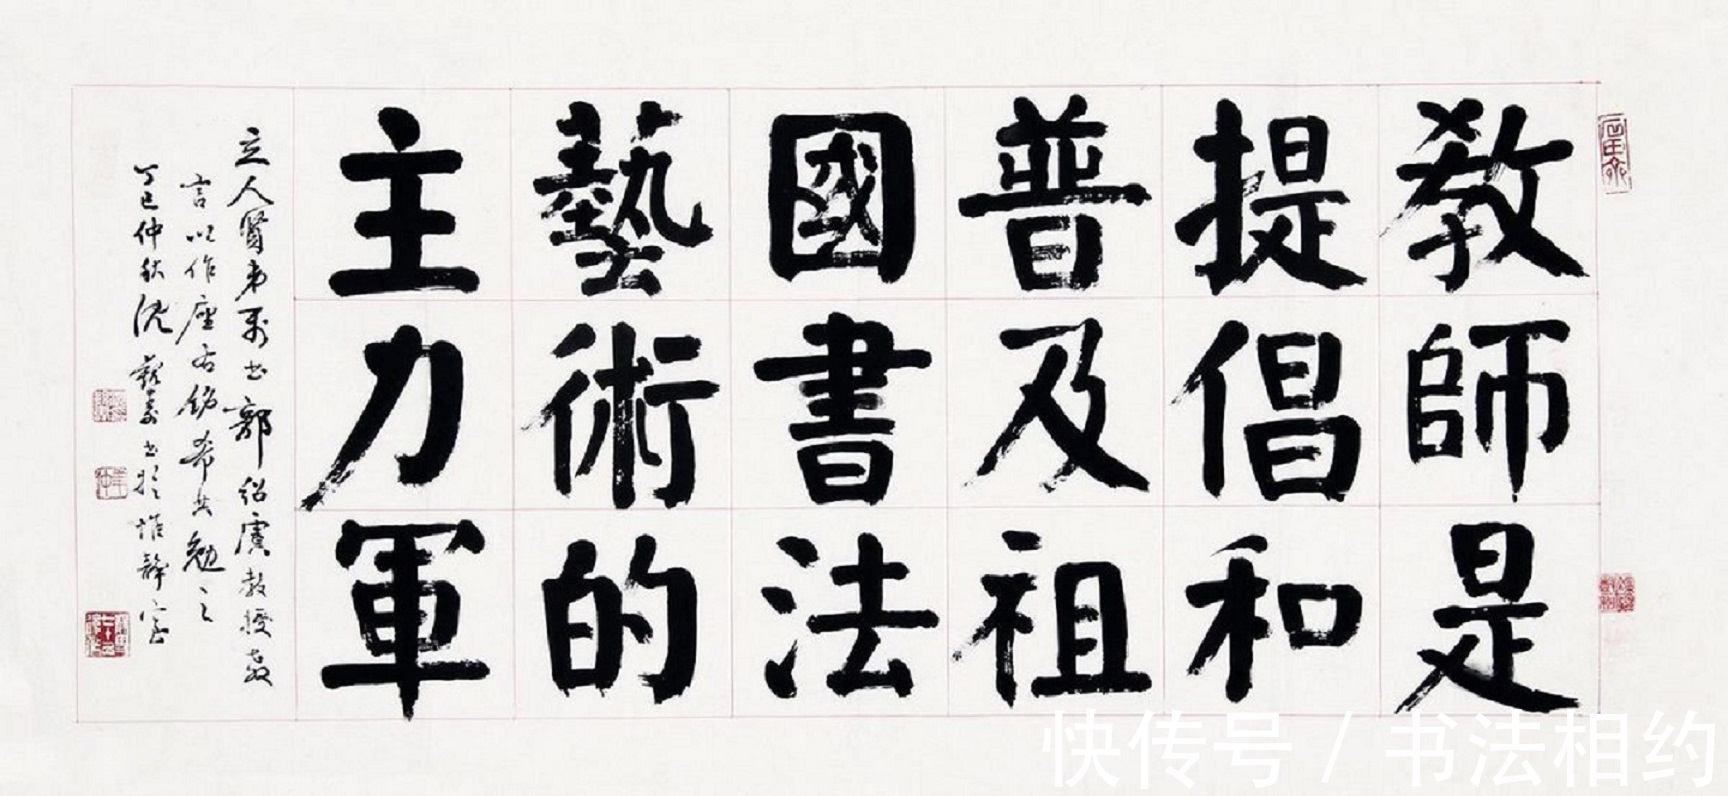 教師是
提倡和
普及祖
國書法
藝術的
主力軍
立人賢弟屬書郭紹虞教授嘉
言以作座右銘希共勉之
丁巳仲秋沈
快传号 / 书法相约